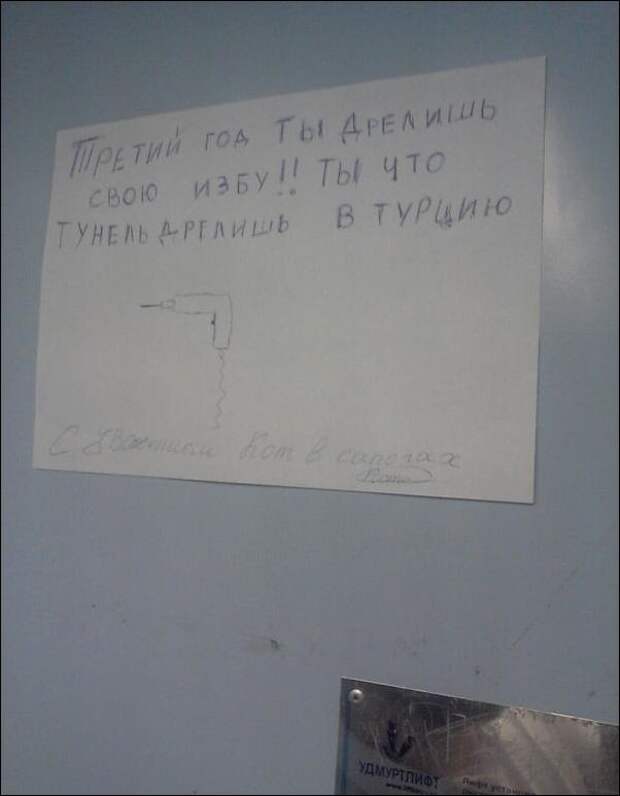 ТРЕТИЙ ГОД ТЫ ДРЕЛИШЬ
СВОЮ ИЗБУ!! ТЫ ЧТО
ТУНЕЛЬ ДРЕЛИШЬ В ТУРЦИЮ
С Кот в сапогах
УДМУРТЛИФТ